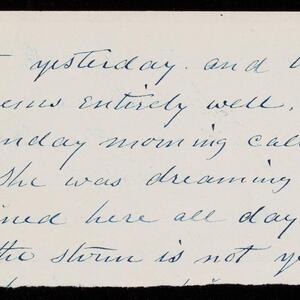 yesterday. and
entirely well.
morning
She was dreaming
here all day
the storm is not